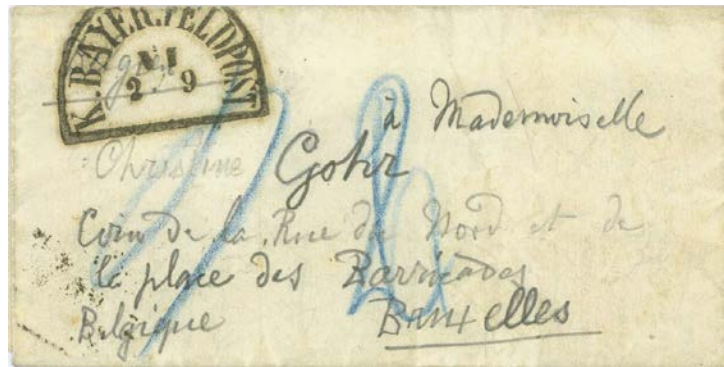 K. BAYER. FELDPOST
VI
2 9
à Mademoiselle
Christine Gohr
Coin de la Rue du Nord et de
la place des Barricades
Belgique Bruxelles